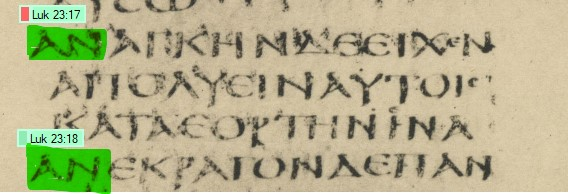 Luk 23:17
ΑΝΑΓΚΗΝΔΕΕΙΧΟΝ
ΑΠΟΛΥΕΙΝΑΥΤΟΙϹ
ΚΑΤΑΕΟΡΤΗΝΙΝΑ
Luk 23:18
ΑΝΕΚΡΑΓΟΝΔΕΠΑΝ